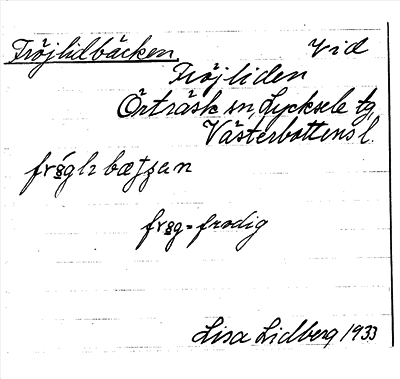 Fröjlidbäcken, vid
Fröjliden
Örträsk sn, Lycksele tg,
Västerbottens l.
frög = frodig
Lisa Lidberg 1933